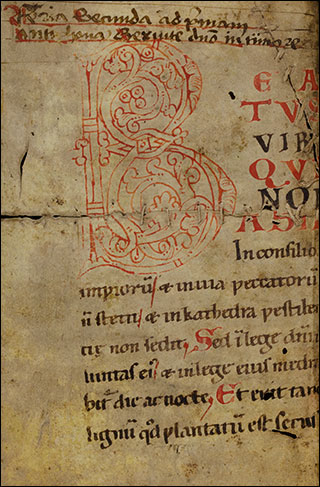 Feria Secunda ad primam
Anti phona Seruite dno in timore
B E A
TVS
VIR
QVI
NON
ABI
In consilio
impioru & in uia peccatoru
n stetit & in kathedra pestilen
tie non sedit. Sed i lege dni uo
luntas ei & in lege eius medita
bit die ac nocte. Et erit tan
lignu qd plantatu est secus